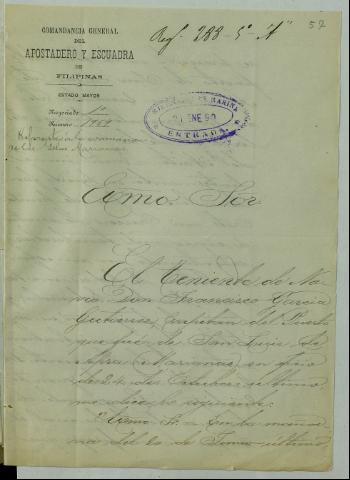 57
Regº 288-5º "A"
COMANDANCIA GENERAL
DEL
APOSTADERO Y ESCUADRA
DE
FILIPINAS
ESTADO MAYOR
Negociado 1º
Número
MARINA
ENE 90
ENTRADA
de las Islas Marianas
Excmo. Sor
El Teniente de Na-
vío Don Francisco García
Gutierrez, Capitan del Puerto
que fué de San Luis de
Apra, Marianas, en oficio
de 24 de Octubre último
me dice lo siguiente:
"Excmo. Sr. = En la maña-
na del 20 de Junio último